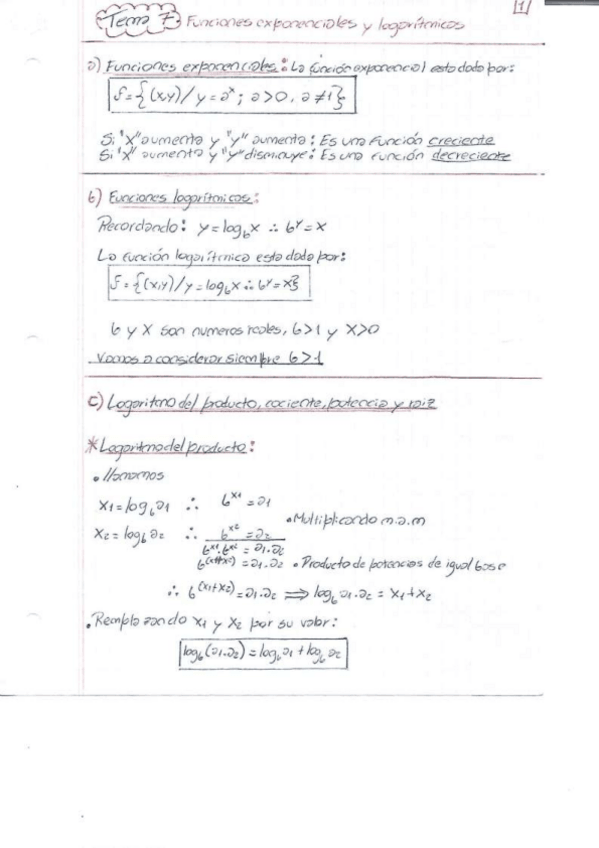 Tema 7 Funciones exponenciales y logarítmicas
1
a) Funciones exponenciales: La función exponencial esta dada por:
f={(x,y)/y=a^x; a>0, a≠1}
Si "x" aumenta y "y" aumenta: Es una función creciente
Si "x" aumenta y "y" disminuye: Es una función decreciente
b) Funciones logarítmicas:
Recordando: y=log_b x ∴ b^y=x
La función logarítmica esta dada por:
f={(x,y)/y=log_b x ∴ b^y=x}
b y x son numeros reales, b>1 y x>0
Vamos a considerar siempre b>1
c) Logaritmo del producto, cociente, potencia y raiz
*Logaritmo del producto:
• llamamos
x1=log_b a1 ∴ b^x1=a1
x2=log_b a2 ∴ b^x2=a2 • Multiplicando m.a.m
b^x1.b^x2 = a1.a2
b^(x1+x2)=a1.a2 • Producto de potencias de igual base
∴ b^(x1+x2)=a1.a2 ⟹ log_b a1.a2 = x1+x2
• Remplazando x1 y x2 por su valor:
log_b(a1.a2)=log_b a1+log_b a2